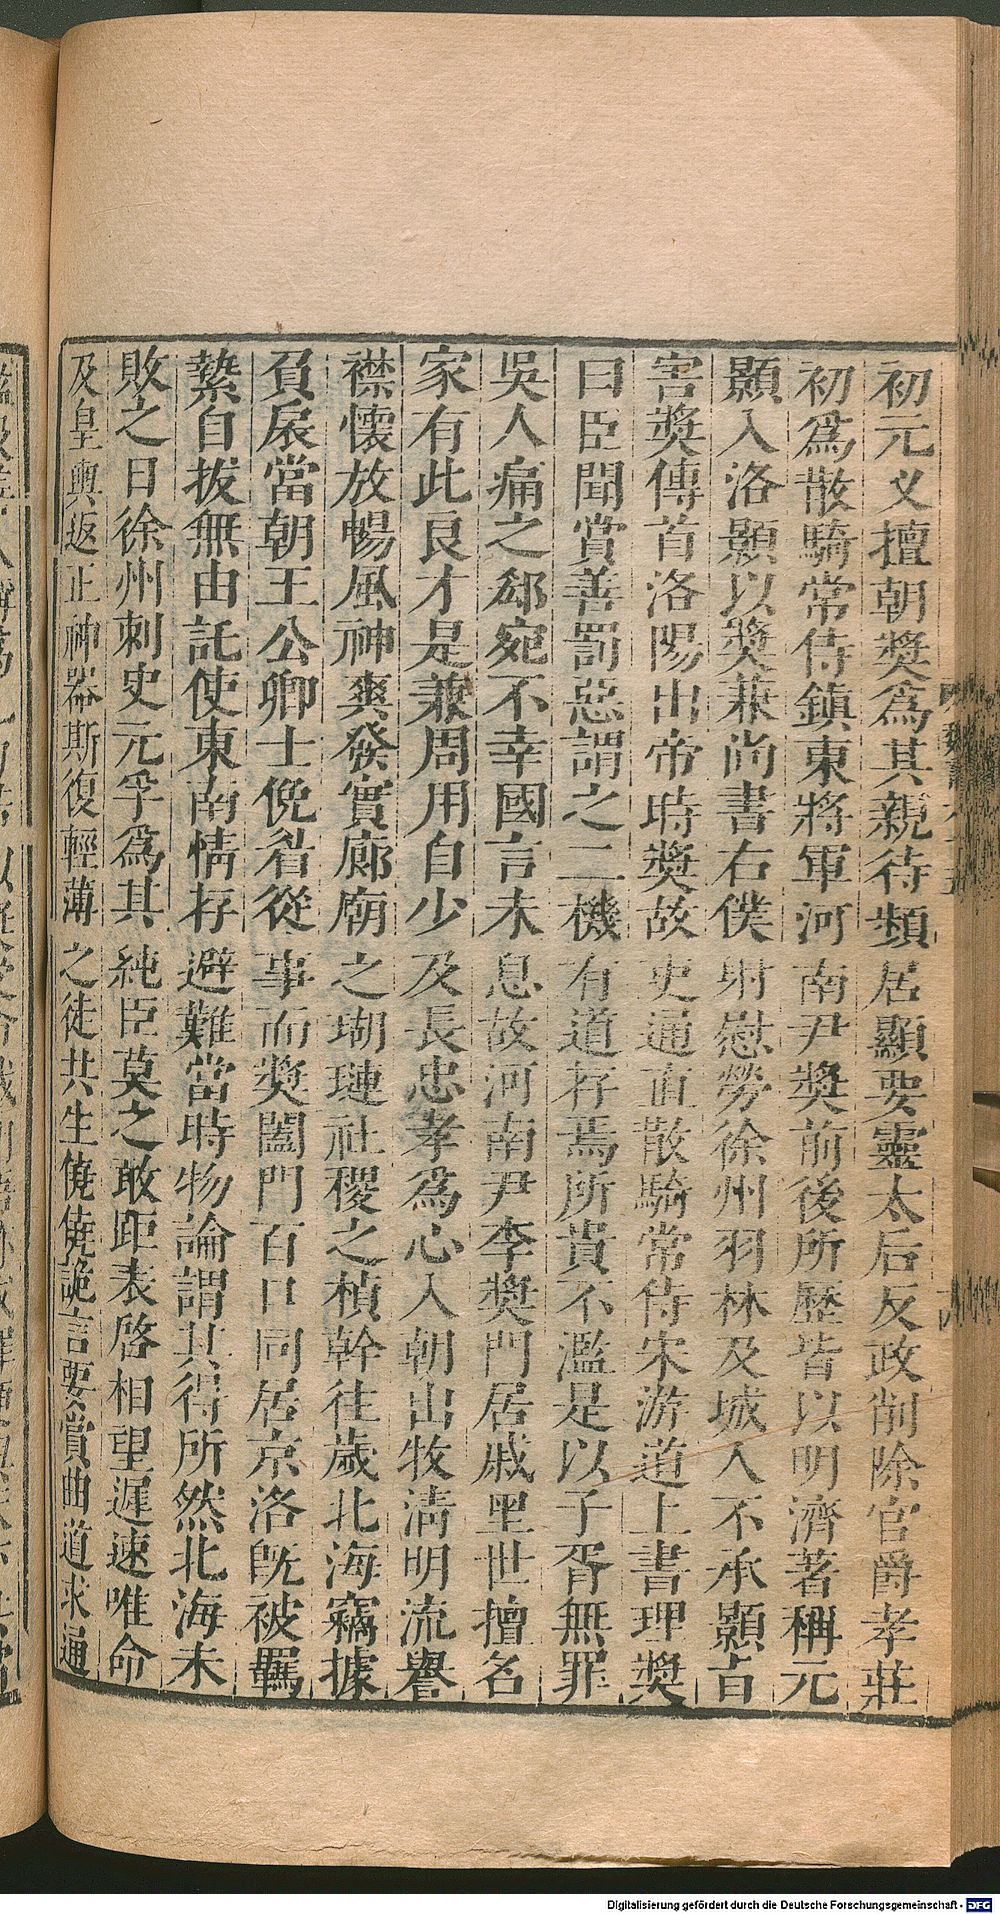 初元义擅朝奬爲其親待頻居顯要靈太后反政削除官爵孝莊
初爲散騎常侍鎮東將軍河南尹奬前後所歷皆以明濟著稱元
顥入洛顥以奬兼尚書右僕射慰勞徐州羽林及城人不承顥旨
害奬傳首洛陽出帝時奬故吏通直散騎常侍宋游道上書理奬
曰臣聞賞善罰惡謂之二機有道存焉所貴不濫是以子胥無罪
吳人痛之郄宛不幸國言未息故河南尹李奬門居戚里世擅名
家有此良才是兼周用自少及長忠孝爲心入朝出牧清明流譽
襟懷放暢風神爽發實廊廟之瑚璉社稷之楨幹往歲北海竊據
負扆當朝王公卿士俛眉從事而奬闔門百口同居京洛旣被羈
縶自拔無由託使東南情存避難當時物論謂其得所然北海未
敗之日徐州刺史元孚爲其純臣莫之敢距表啓相望遲速唯命
及皇輿返正神器斯復輕薄之徒共生僥僥詭言要賞曲道求通
Digitalisierung gefördert durch die Deutsche Forschungsgemeinschaft - DFG